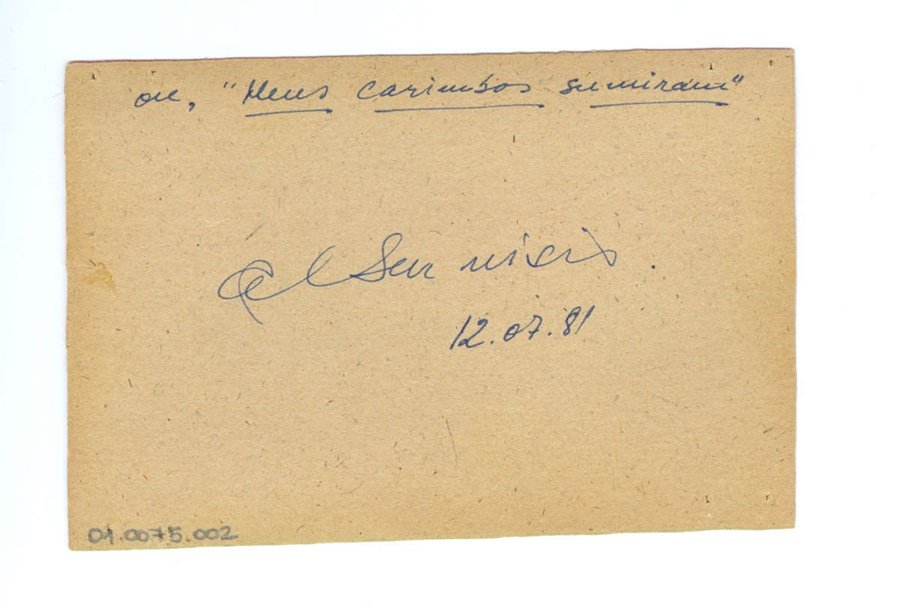 ou, "Meus carimbos sumiram"
12.07.81
01.0075.002